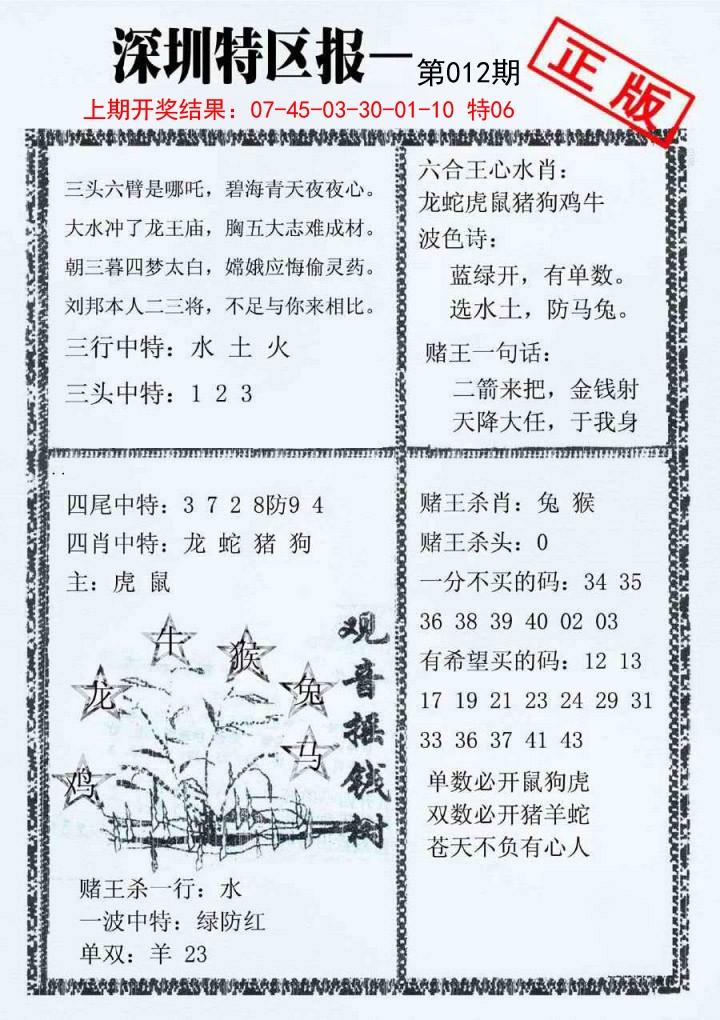 深圳特区报一
第012期
正版
上期开奖结果：07-45-03-30-01-10 特06
三头六臂是哪吒，碧海青天夜夜心。
大水冲了龙王庙，胸五大志难成材。
朝三暮四梦太白，嫦娥应悔偷灵药。
刘邦本人二三将，不足与你来相比。
三行中特：水 土 火
三头中特：1 2 3
六合王心水肖：
龙蛇虎鼠猪狗鸡牛
波色诗：
蓝绿开，有单数。
选水土，防马兔。
赌王一句话：
二箭来把，金钱射
天降大任，于我身
四尾中特：3 7 2 8防9 4
四肖中特：龙 蛇 猪 狗
主：虎 鼠
牛
猴
龙
兔
马
鸡
观音摇钱树
赌王杀一行：水
一波中特：绿防红
单双：羊 23
赌王杀肖：兔 猴
赌王杀头：0
一分不买的码：34 35
36 38 39 40 02 03
有希望买的码：12 13
17 19 21 23 24 29 31
33 36 37 41 43
单数必开鼠狗虎
双数必开猪羊蛇
苍天不负有心人